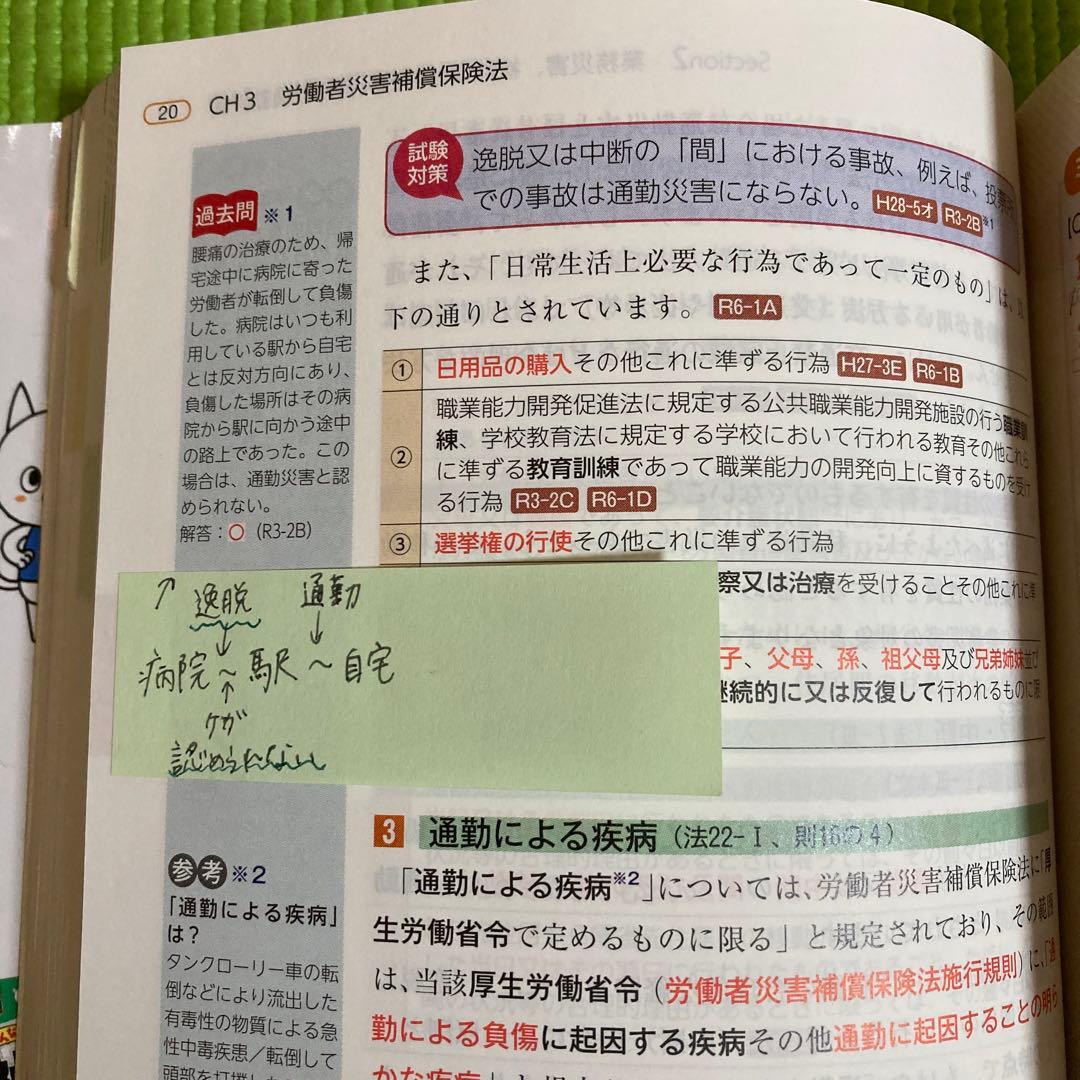 20 CH3 労働者災害補償保険法
試験
対策
逸脱又は中断の「間」における事故、例えば、投票
での事故は通勤災害にならない。 H28-5オ R3-2B ※1
過去問 ※1
腰痛の治療のため、帰
宅途中に病院に寄った
労働者が転倒して負傷
した。病院はいつも利
用している駅から自宅
とは反対方向にあり、
負傷した場所はその病
院から駅に向かう途中
の路上であった。この
場合は、通勤災害と認
められない。
解答：○ (R3-2B)
また、「日常生活上必要な行為であって一定のもの」は、以
下の通りとされています。 R6-1A
① 日用品の購入その他これに準ずる行為 H27-3E R6-1B
職業能力開発促進法に規定する公共職業能力開発施設の行う職業訓
② 練、学校教育法に規定する学校において行われる教育その他これら
に準ずる教育訓練であって職業能力の開発向上に資するものを受け
る行為 R3-2C R6-1D
③ 選挙権の行使その他これに準ずる行為
察又は治療を受けることその他これに準
子、父母、孫、祖父母及び兄弟姉妹並び
継続的に又は反復して行われるものに限
↗ 逸脱 通勤
↓ ↓
病院〜駅〜自宅
↑
ケガ
認められない
3 通勤による疾病（法22-Ⅰ、則18の4）
「通勤による疾病※2」については、労働者災害補償保険法に「厚
生労働省令で定めるものに限る」と規定されており、その範囲
は、当該厚生労働省令（労働者災害補償保険法施行規則）に、「通
勤による負傷に起因する疾病その他通勤に起因することの明ら
かな疾病」
参考 ※2
「通勤による疾病」
は？
タンクローリー車の転
倒などにより流出した
有毒性の物質による急
性中毒疾患／転倒して
頭部を打撲した